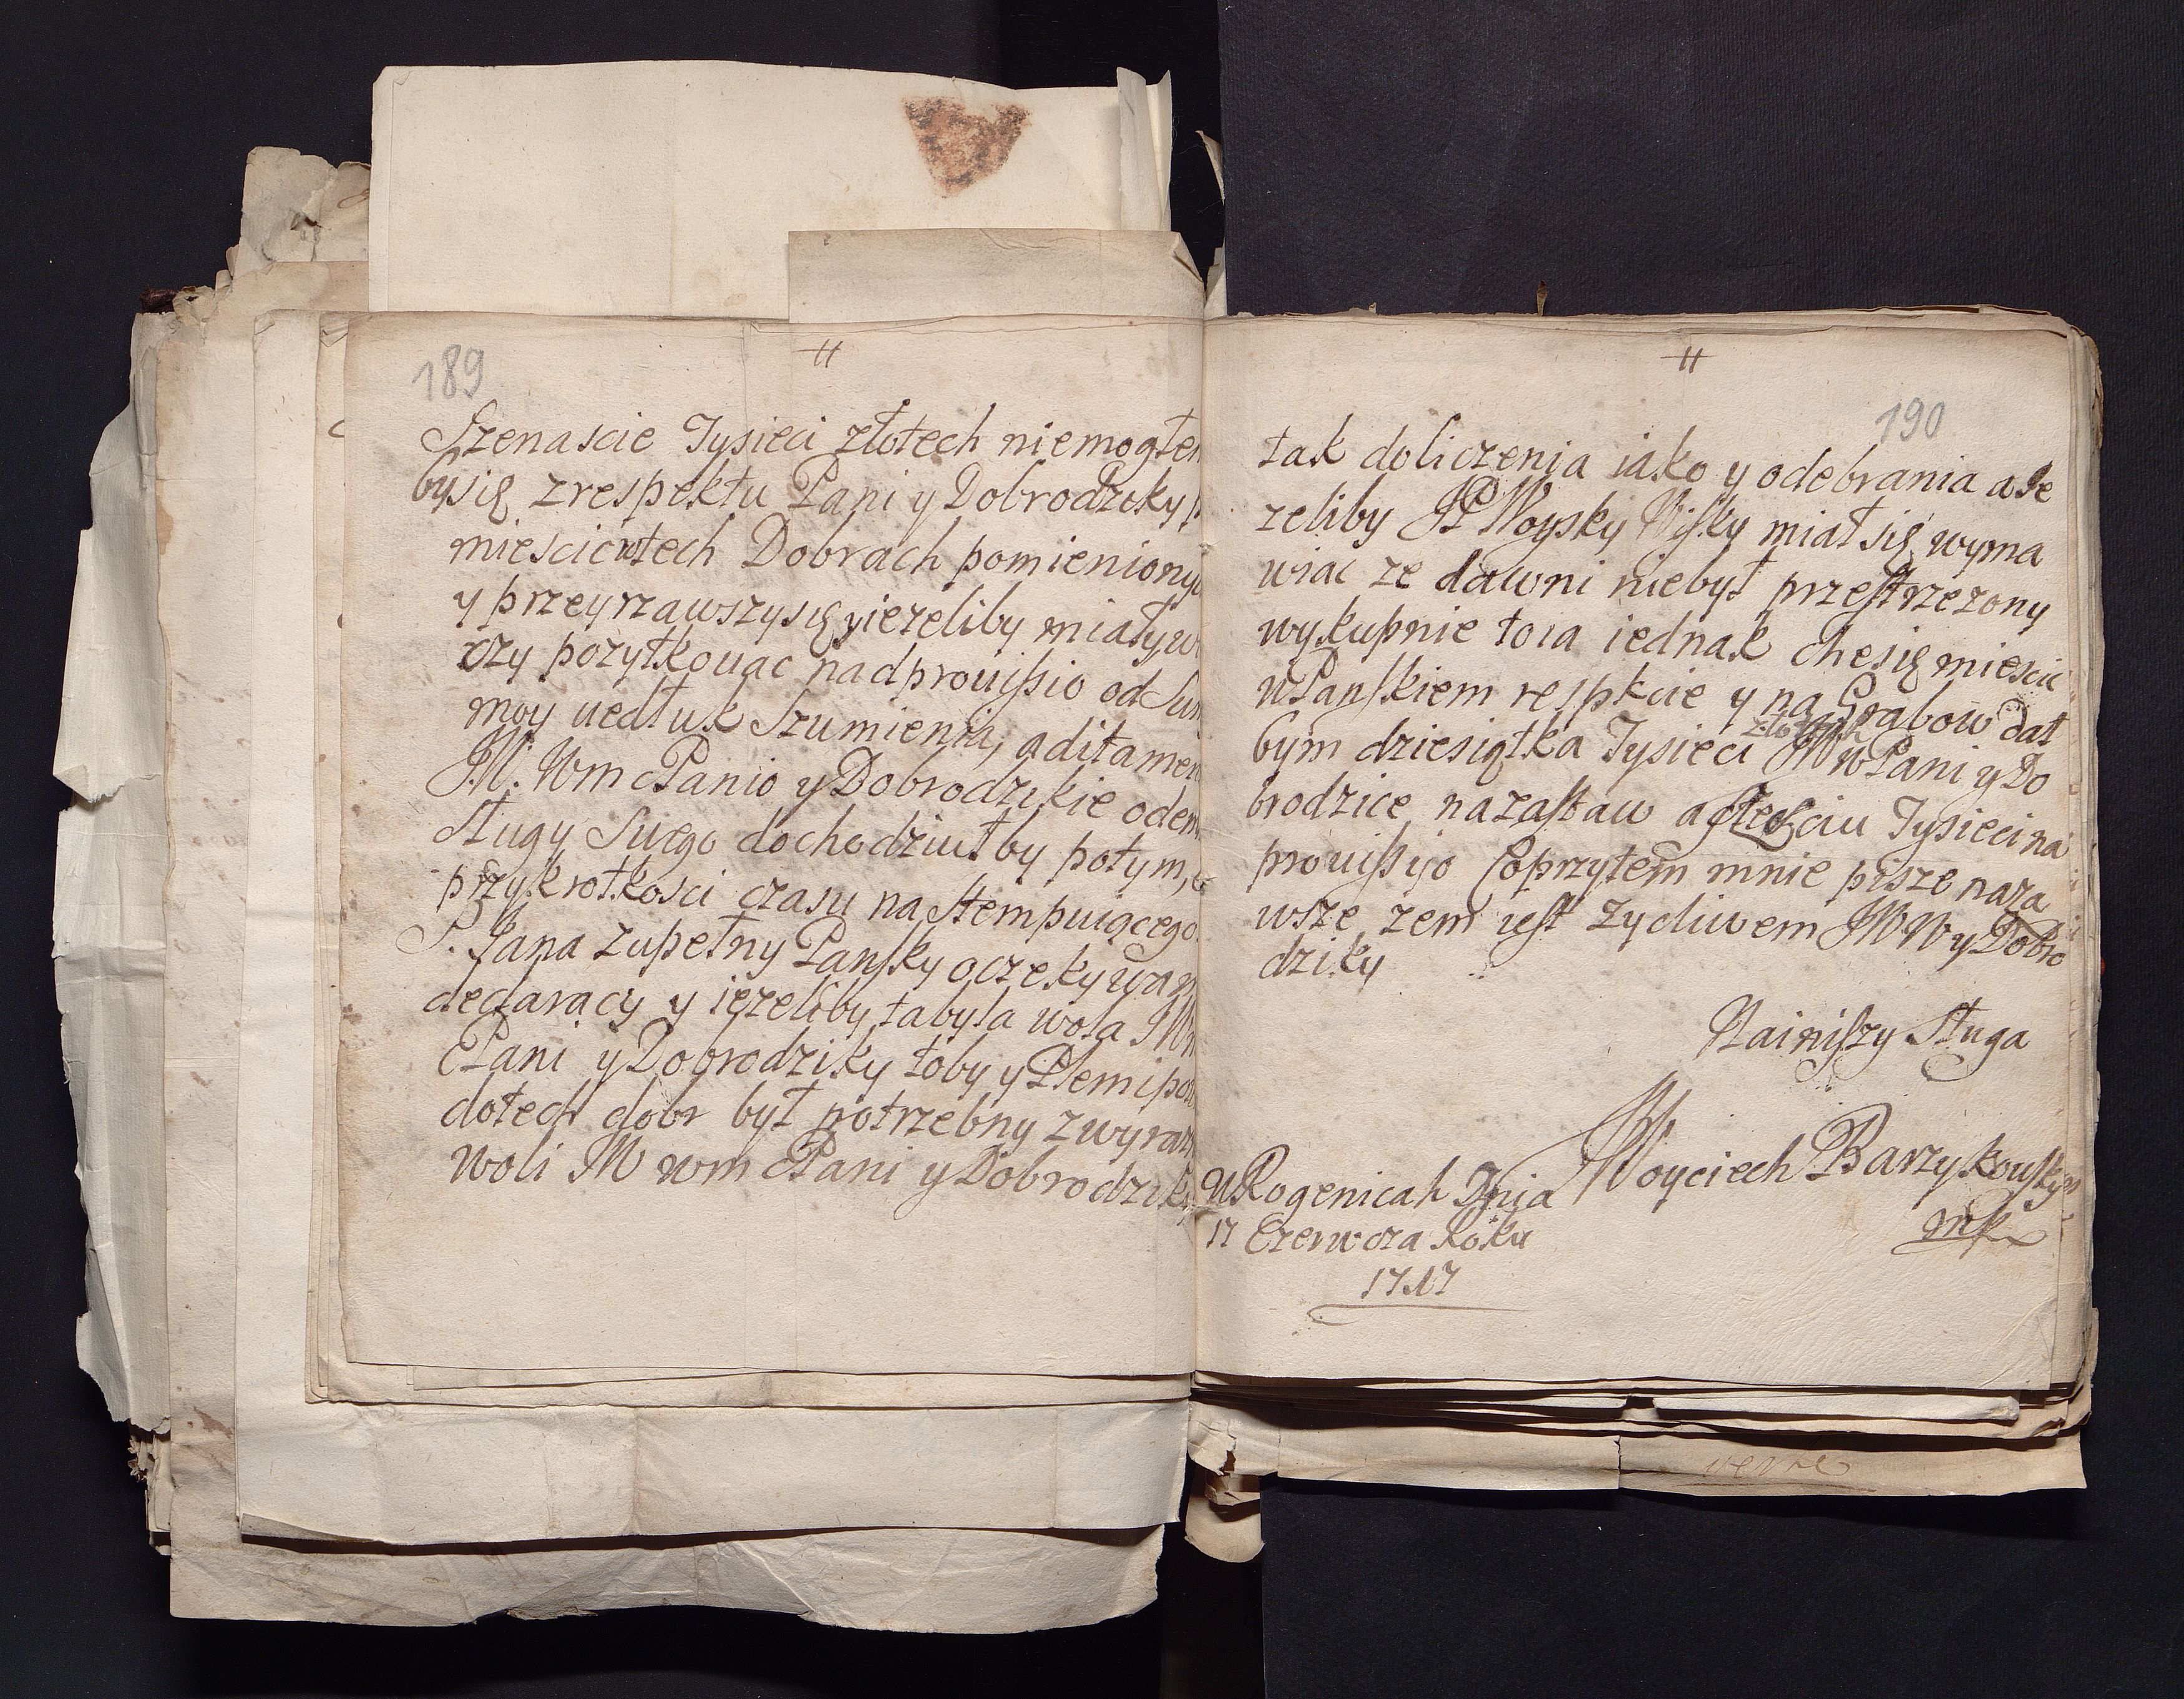 189
#
Szenascie Tysieci złotech niemogłem
bysię zrespektu Pani y Dobrodzieky
mięscicwtech Dobrach pomieniony
y przeyrzawszysię yiezeliby miały
czy pozytkouac nadprouisio od Sum
moy uedłuk Szumienia, aditamen
JM. Wm Panio y Dobrodzikie odem
sługy Suego dochodziułby potym,
przykrotkosci czasu na stempuiącego
S. Jana zupełny Pansky oczekywam
declaracy y iezeliby tabyla wola JMm
Pani y Dobrodziky toby y Plemipo
dotech dobr był potrzebny zwyraz
woli JM wm Pani y Dobrodziky
#
190
tak doliczenia iako y odebrania a Je
zeliby JP Woysky Wisky miał się wyma
wiac ze dawni niebył przestrzezony
wykupnie to ia iednak chesię miescic
wPanskiem respkcie y na Grabow dał
złotech
bym dziesiątka Tysieci JMwPani y Do
brodzice nazastaw a Tysieci na
prouisyo Coprzytem mnie pisze naza
wsze zem iest Zycliwem JMW y Dobro
dziky
Nainiszy Sługa
Woyciech Barzykowsky
mp
WRogenicah Dnia
17 Czerwcza Roku
1717